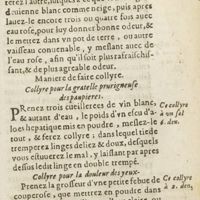 duienne blanc comme neige, puis apres
lauez-le encore trois ou quatre fois auec
eau rose, pour luy donner bonne odeur, &
le mettez dans vn pot de terre, ou autre
vaisseau conuenable, y meslant auec de
l'eau rose, afin qu'il soit plus rafraischis-
sant, & de plus agreable odeur.
Maniere de faire collyre.
Collyre pour la gratelle prurigneuse
des paupieres.
PRenez trois cueillerees de vin blanc,
& autant d'eau, le poids d'vn escu d'a-
loes hepatique mis en poudre, meslez-le
tout, & ferez collyre, dans lequel tiede
tremperez linges deliez & doux, desquels
vous estuuerez le mal, y laissant par apres
dessus ledit linge en double trempé.
Collyre pour la douleur des yeux.
Prenez la grosseur d'vne petite febue de
couperose, que mettrez en poudre dans
Ce collyre
à un sol
6. den.
Ce collyre
à 2. den.